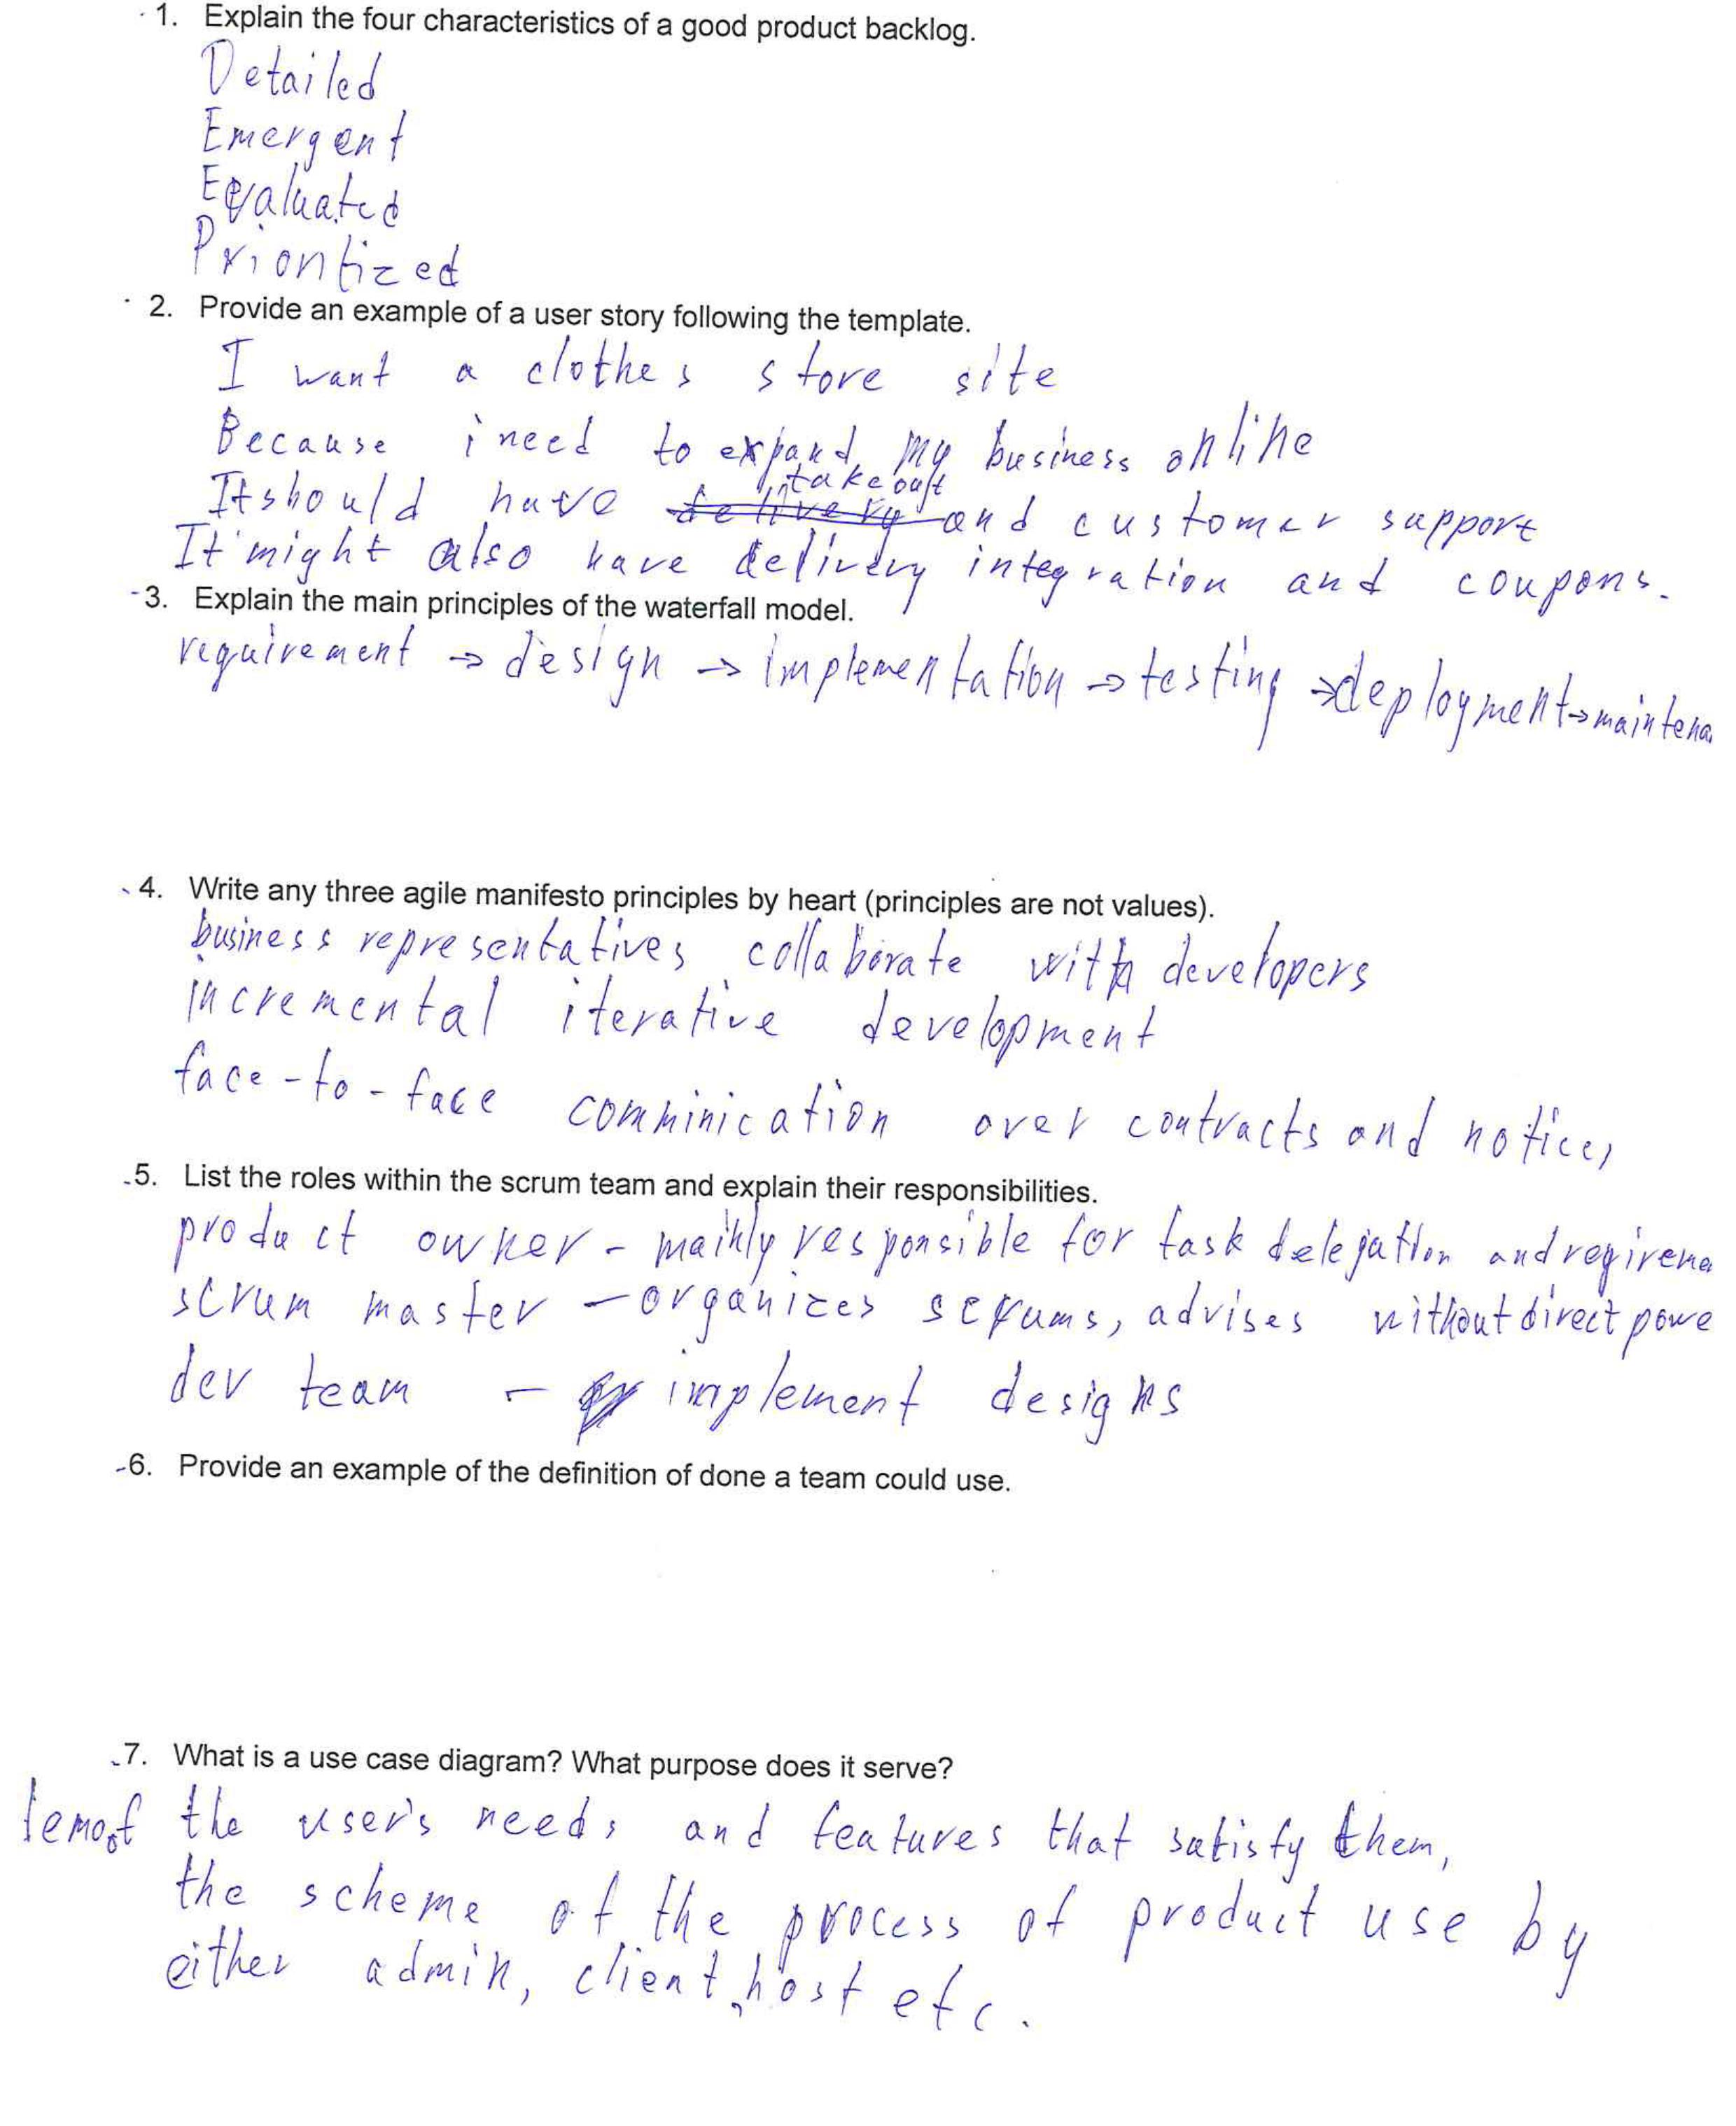 1. Explain the four characteristics of a good product backlog.
Detailed
Emergent
Evaluated
Prioritized
2. Provide an example of a user story following the template.
I want a clothes store site
Because i need to expand my business online
takeout
It should have delivery and customer support
It might also have delivery integration and coupons.
3. Explain the main principles of the waterfall model.
requirement → design → implementation → testing → deployment → maintena
4. Write any three agile manifesto principles by heart (principles are not values).
business representatives collaborate with developers
incremental iterative development
face-to-face comminication over contracts and notices
5. List the roles within the scrum team and explain their responsibilities.
product owner - mainly responsible for task delegation and reqireme
scrum master - organizes scrums, advises without direct powe
dev team - implement designs
6. Provide an example of the definition of done a team could use.
7. What is a use case diagram? What purpose does it serve?
the user's needs and features that satisfy them,
the scheme of the process of product use by
either admin, client, host etc.